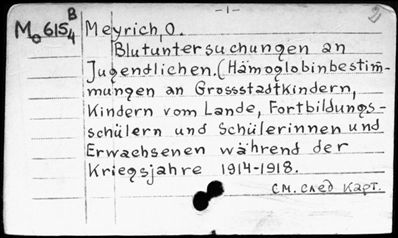 -1-
2
Mo 615 B/4
Meyrich, O.
Blutuntersuchungen an
Jugendlichen. (Hämoglobinbestim-
mungen an Grossstadtkindern,
Kindern vom Lande, Fortbildungs-
schülern und Schülerinnen und
Erwachsenen während der
Kriegsjahre 1914-1918.
см. след карт.